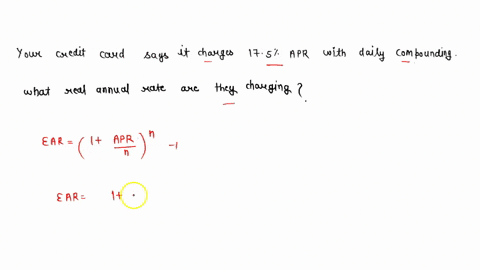 Your credit card says it charges 17.5% APR with daily compounding.
what real annual rate are they charging?
EAR = ( 1 + APR/n )^n -1
EAR = 1+ .